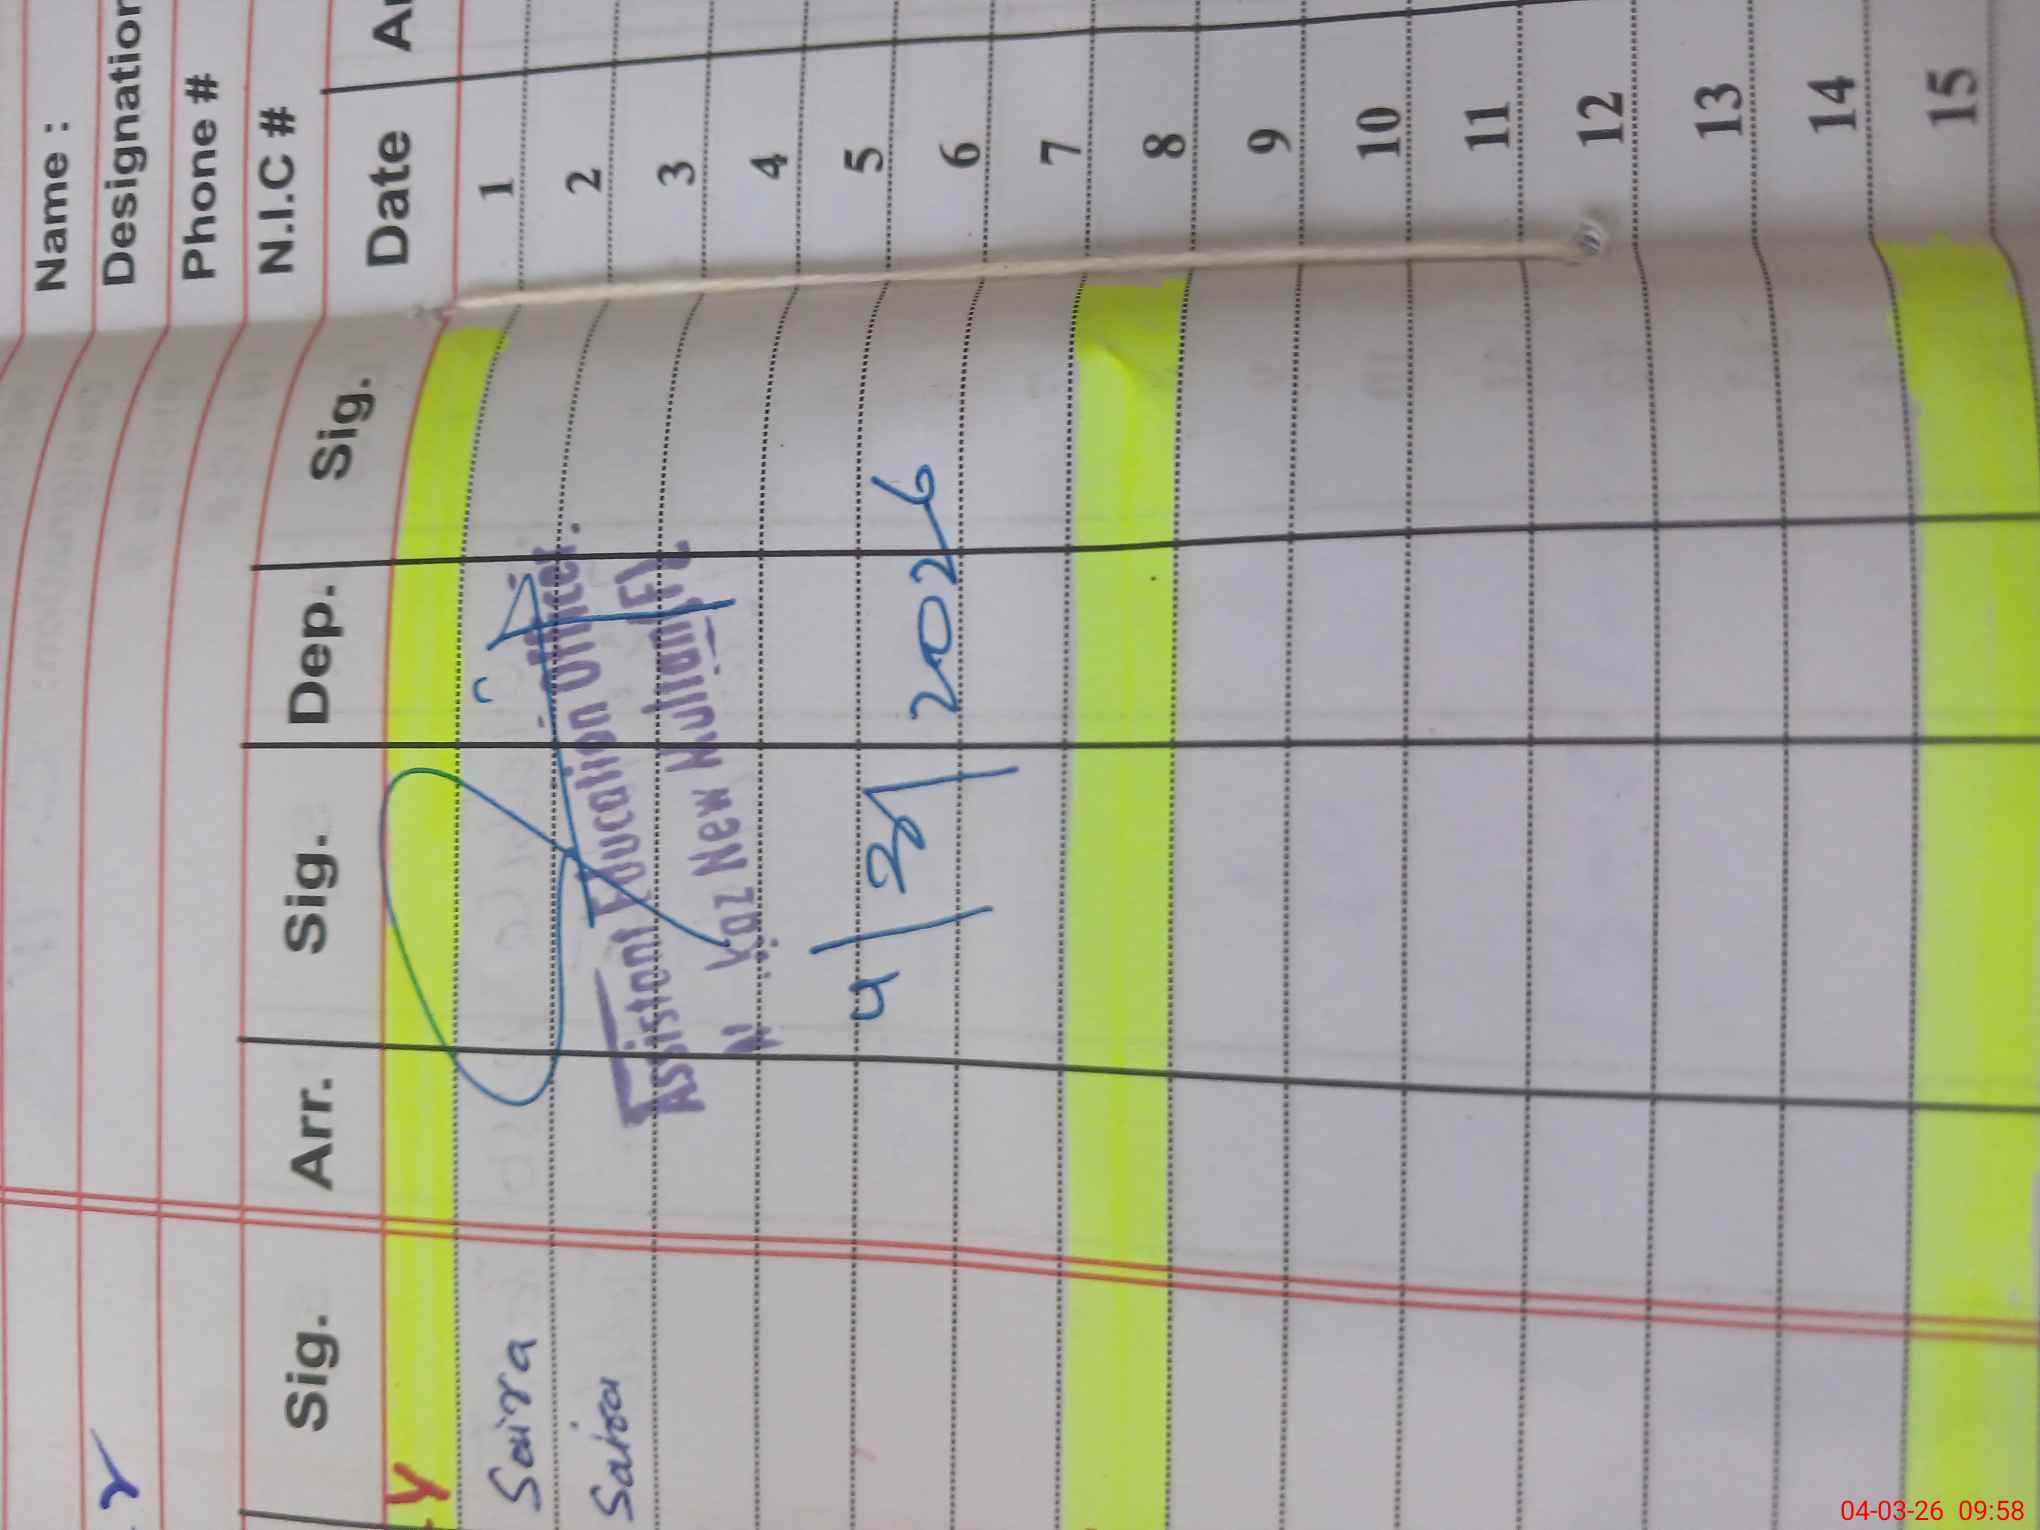 Name :
Designation
Phone #
N.I.C #
Sig. Arr. Sig. Dep. Sig. Date
y
1
Saira
2
Saira
3
Assistant Education Officer.
4
5
6
4/3/2026
7
8
9
10
11
12
13
14
15
04-03-26 09:58